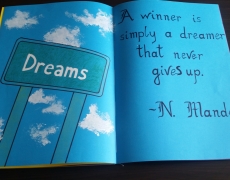 Dreams
A winner is
simply a dreamer
that never
gives up.
-N. Mande